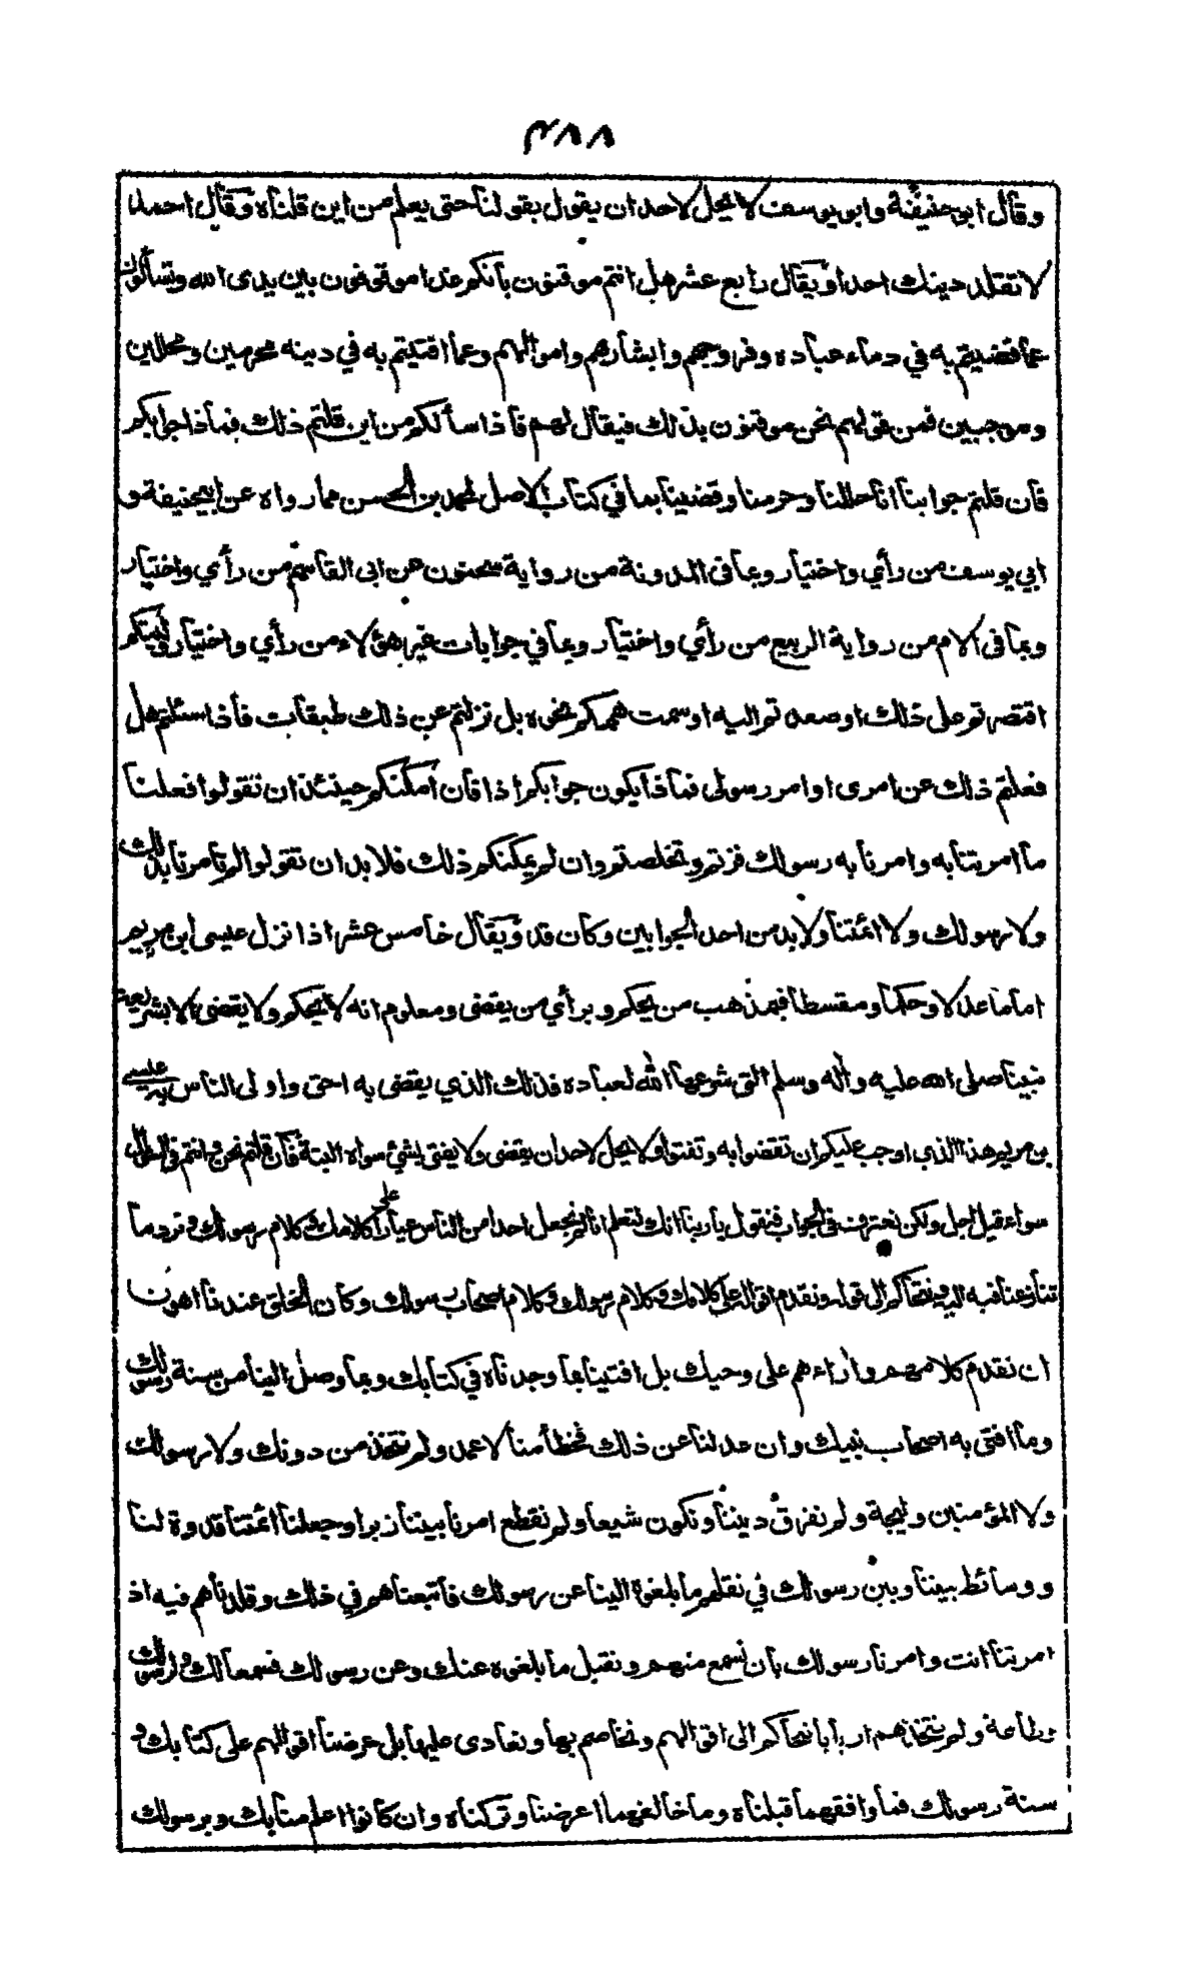 ٢٨٨
وقال ابو حنيفة وابو يوسف لا يحل لاحد ان يقول بقولنا حتى يعلم من اين قلناه وقال احمد
لا تقلد دينك احدا ويقال رابع عشر هل انتم موقنون بأنكم غدا موقوفون بين يدى الله وتسألون
عما قضيتم به في دماء عباده وفروجهم وابشارهم واموالهم وعما افتيتم به في دينه محرمين ومحللين
وموجبين فمن قولهم نحن موقنون بذلك فيقال لهم فأذا سألكم من اين قلتم ذلك فماذا جوابكم
فأن قلتم جوابنا انا حللنا وحرمنا وقضينا بما في كتاب الاصل لمحمد بن الحسن مما رواه عن ابيحنيفة و
ابي يوسف من رأي واختيار وبما فى المدونة من رواية سحنون عن ابى القاسم من رأي واختيار
وبما فى الام من رواية الربيع من رأي واختيار وبما في جوابات غير هؤلاء من رأي واختيار وليتكم
اقتصرتم على ذلك او صعدتم اليه او سمت هممكم نحوه بل نزلتم عن ذلك طبقات فأذا سئلتم هل
فعلتم ذلك عن امرى او امر رسولى فماذا يكون جوابكم اذا فان امكنكم حينئذ ان تقولوا فعلنا
ما امرتنا به وامرنا به رسولك فزتم وتخلصتم وان لم يمكنكم ذلك فلا بد ان تقولوا لم تأمرنا بذلك
ولا رسولك ولا ائمتنا ولا بد من احد الجوابين وكان قد ويقال خامس عشر اذا نزل عيسى ابن مريم
اماما عدلا وحكما ومقسطا فبمذهب من يحكم وبرأي من يقضى ومعلوم انه لا يحكم ولا يقضى الا بشريعة
نبينا صلى الله عليه وآله وسلم التى شرعها الله لعباده فذلك الذي يقضى به احق واولى الناس به عيسى
بن مريم هذا الذي اوجب عليكم ان تقضوا به وتفتوا ولا يحل لاحد ان يقضى ولا يفتى بشئ سواه البتة فأن قلتم نحن وانتم في السؤال
سواء قيل اجل ولكن نعترف فى الجواب فنقول يا ربنا انك لتعلم انا لم نجعل احدا من الناس عيارا على كلامك وكلام رسولك ونرد ما
تنازعنا فيه اليه ونتحاكم الى قوله ونقدم اقواله على كلامك وكلام رسولك وكلام اصحاب رسولك وكان الخلق عندنا اهون
ان نقدم كلامهم وأراءهم على وحيك بل افتينا بما وجدناه في كتابك وبما وصل الينا من سنة رسولك
وما افتى به اصحاب نبيك وان عدلنا عن ذلك فخطأ منا لا عمد ولم نتخذ من دونك ولا رسولك
ولا المؤمنين وليجة ولم نفرق ديننا ونكون شيعا ولم نقطع امرنا بيننا زبرا وجعلنا ائمتنا قدوة لنا
ووسائط بيننا وبين رسولك في نقلهم ما بلغوه الينا عن رسولك فأتبعناهم في ذلك وقلدناهم فيه اذ
امرتنا انت وامرنا رسولك بان نسمع منهم ونقبل ما بلغوه عنك وعن رسولك فسمعا لك ولرسولك
وطاعة ولم نتخذهم اربابا نتحاكم الى اقوالهم ونخاصم بها ونعادى عليها بل عرضنا اقوالهم على كتابك و
سنة رسولك فما وافقهما قبلناه وما خالفهما اعرضنا وتركناه وان كانوا اعلم منا بك وبرسولك